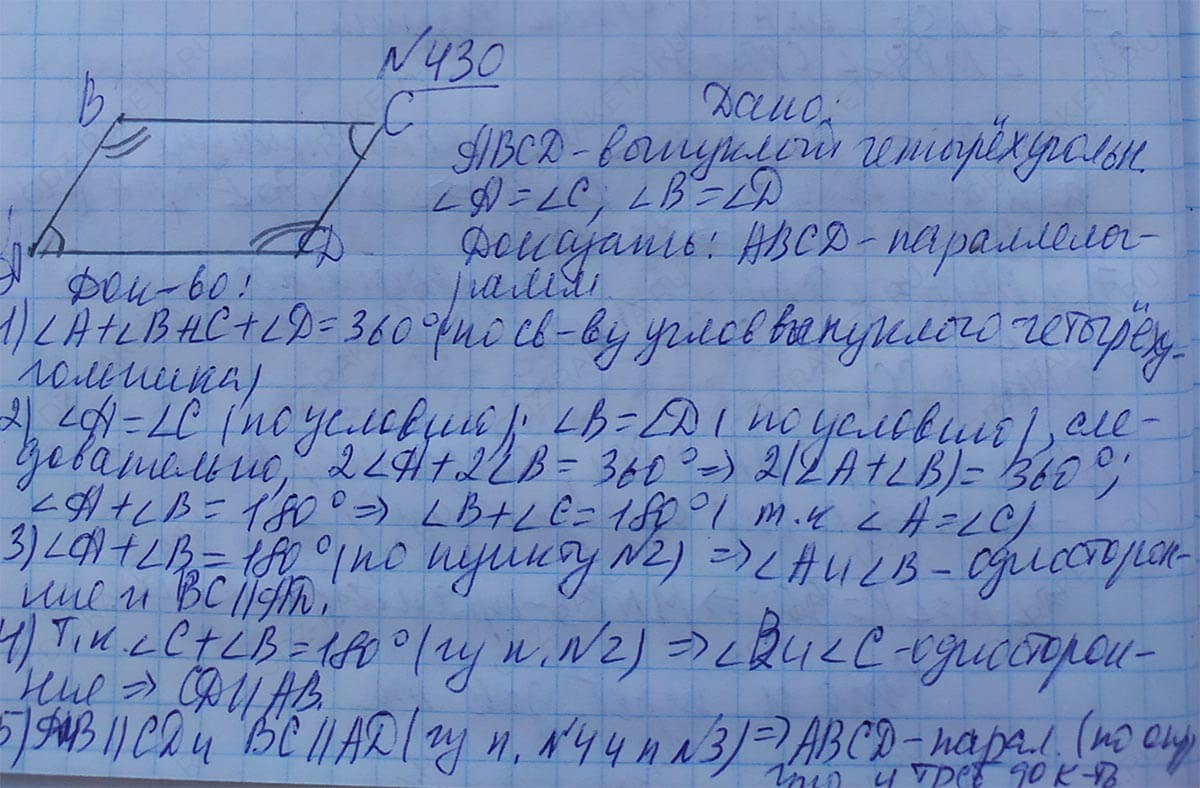 N430
B
C
A
D
Дано:
ABCD - выпуклый четырёхугольн.
∠A=∠C; ∠B=∠D
Доказать: ABCD - параллелог-
рамм
Док-во:
1) ∠A+∠B+∠C+∠D=360° (по св-ву углов выпуклого четырёху-
гольника)
2) ∠A=∠C (по условию); ∠B=∠D (по условию), сле-
довательно, 2∠A+2∠B=360° => 2(∠A+∠B)=360°;
∠A+∠B=180° => ∠B+∠C=180° (т.к ∠A=∠C)
3) ∠A+∠B=180° (по пункту N2) => ∠A и ∠B - односторон-
ние и BC||AD.
4) Т.к. ∠C+∠B=180° (из п. N2) => ∠B и ∠C - односторон-
ние => CD||AB.
5) AB||CD и BC||AD (из п. N4 и п N3) => ABCD - парал. (по опр
что и треб док-ть